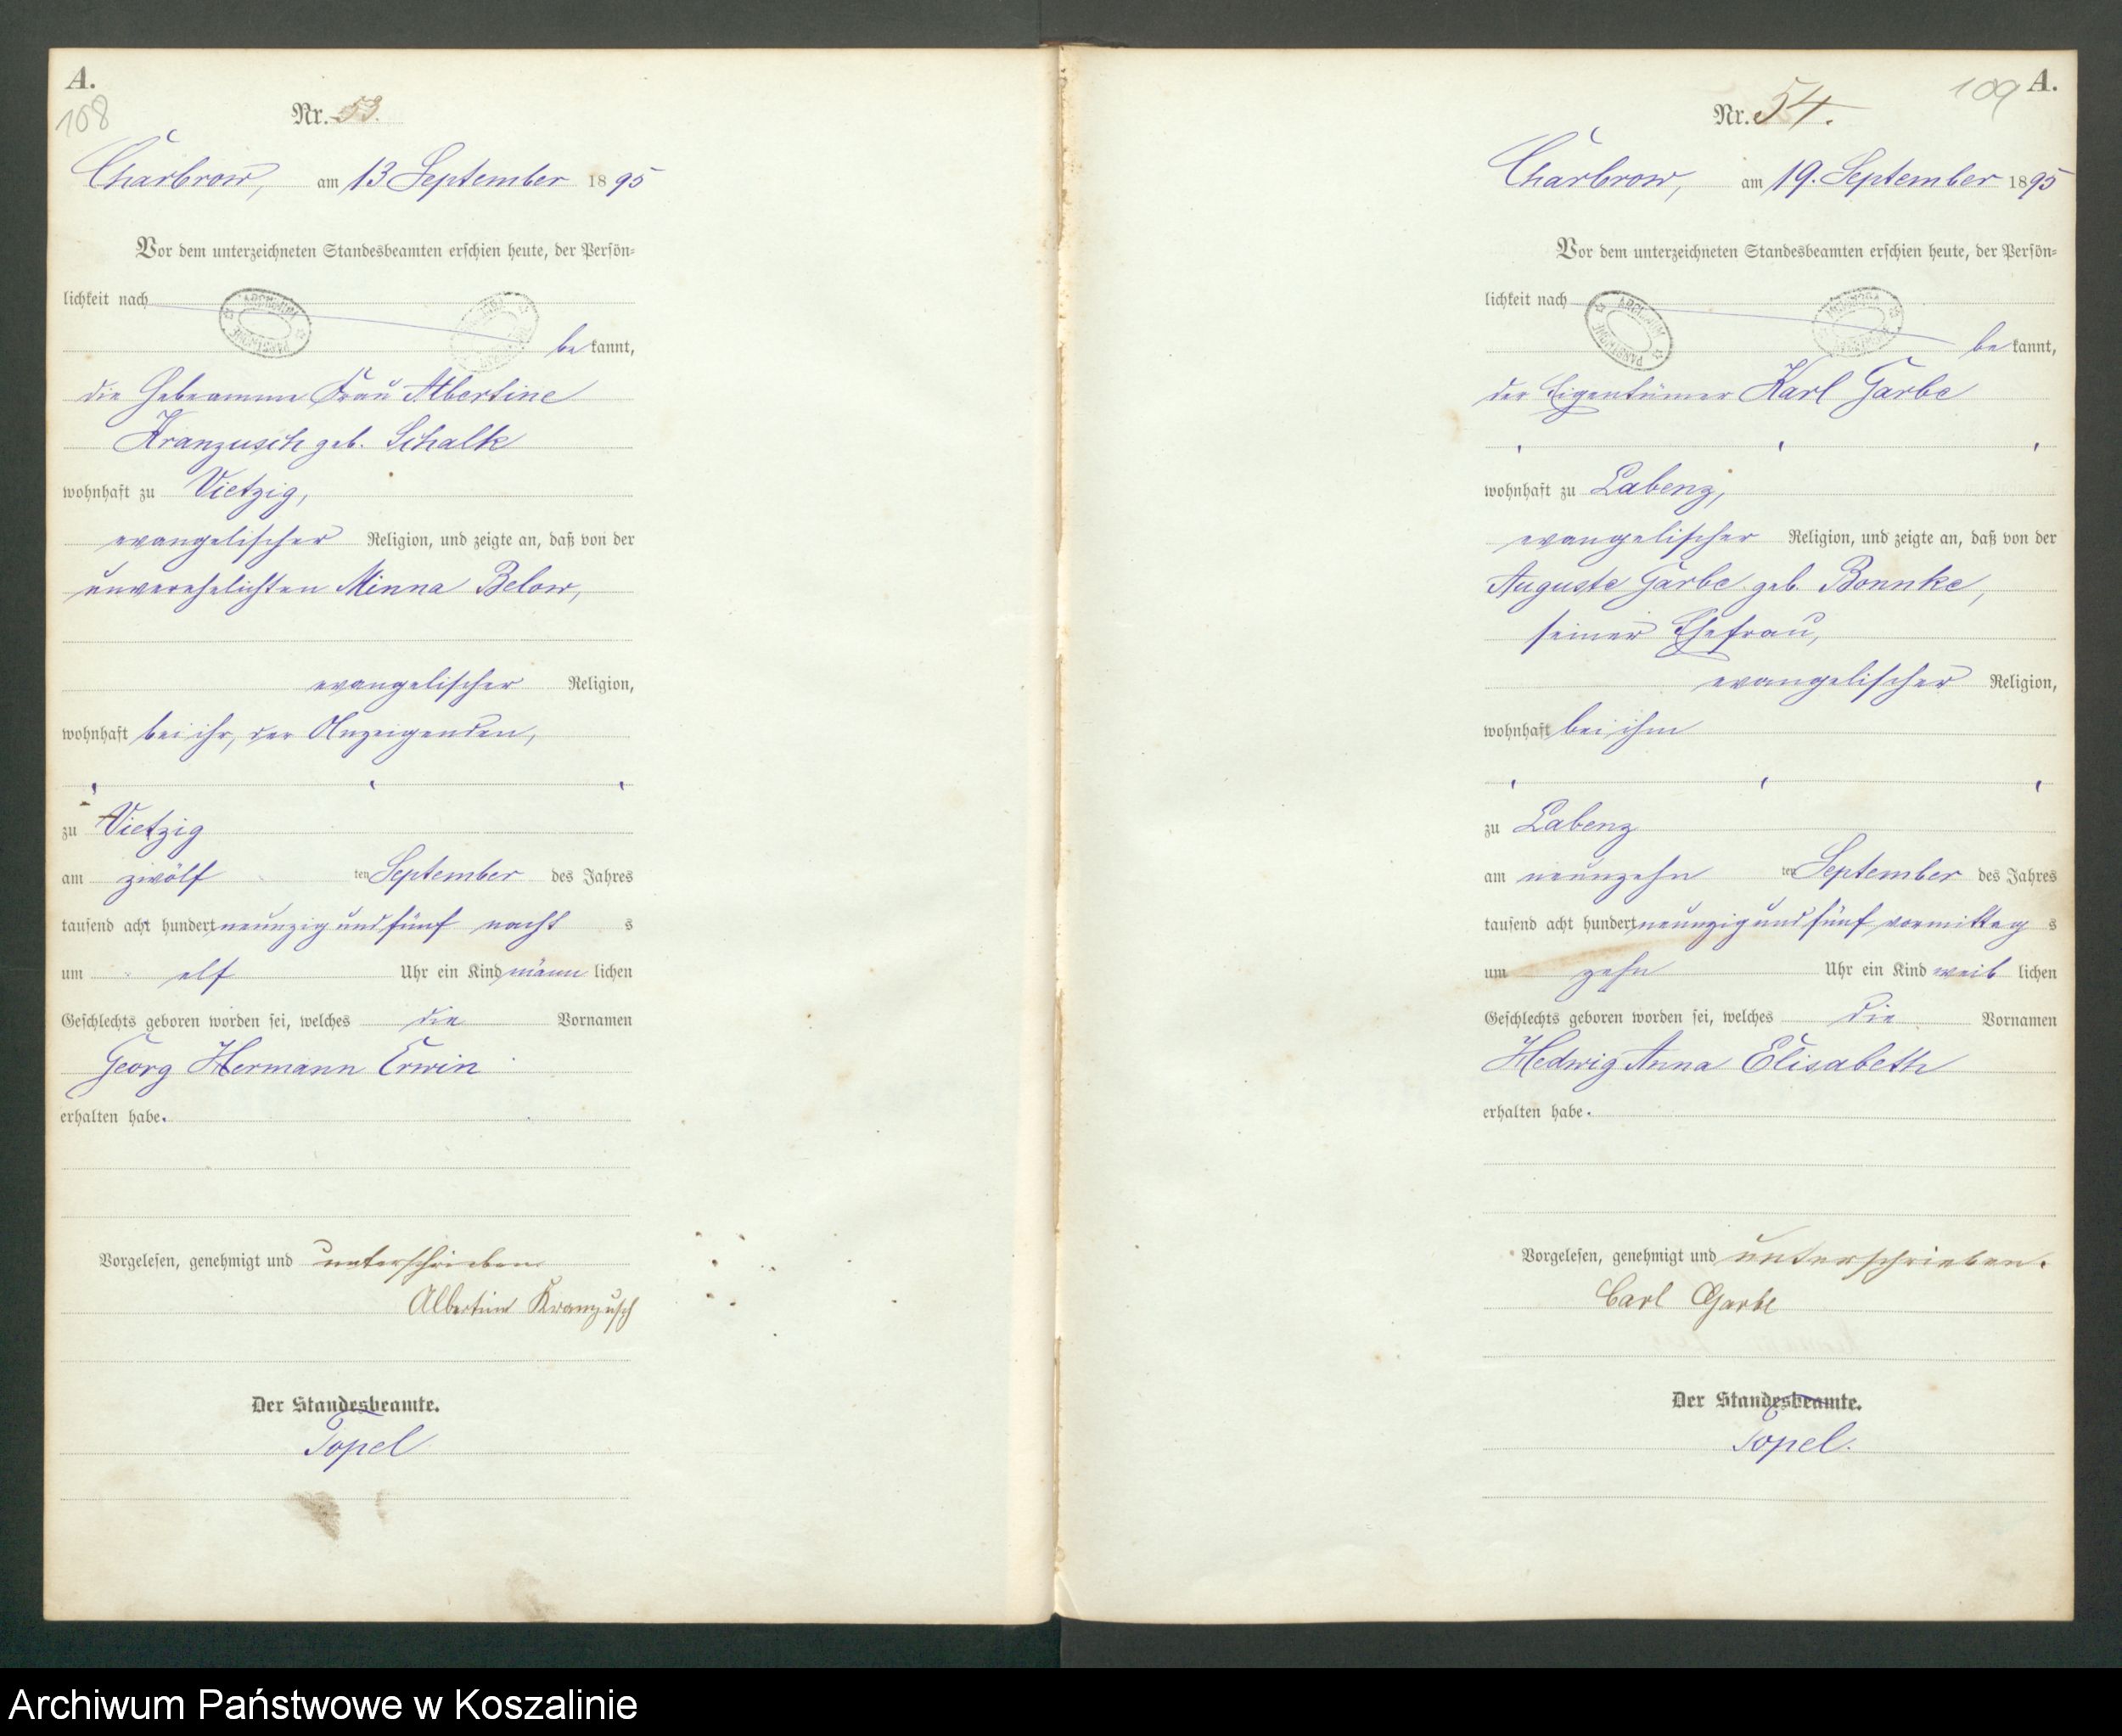 A.
108
Nr. 53.
Charbrow, am 13 September 1895
Vor dem unterzeichneten Standesbeamten erschien heute, der Persön-
lichkeit nach
ARCHIWUM PAŃSTWOWE
be kannt,
die Hebeamme Frau Albertine
Kranzusch geb. Schalk
wohnhaft zu Vietzig,
evangelischer Religion, und zeigte an, daß von der
unverehelichten Minna Below,
evangelischer Religion,
wohnhaft bei ihr, der Anzeigenden,
zu Vietzig
am zwölf ten September des Jahres
tausend acht hundert neunzig und fünf nacht s
um elf Uhr ein Kind männ lichen
Geschlechts geboren worden sei, welches die Vornamen
Georg Hermann Erwin
erhalten habe.
Vorgelesen, genehmigt und unterschrieben
Albertine Kranzusch
Der Standesbeamte.
Topel
109
A.
Nr. 54.
Charbrow, am 19. September 1895
Vor dem unterzeichneten Standesbeamten erschien heute, der Persön-
lichkeit nach
ARCHIWUM PAŃSTWOWE
be kannt,
der Eigentümer Karl Garbe
wohnhaft zu Labenz,
evangelischer Religion, und zeigte an, daß von der
Auguste Garbe geb. Bonnke,
seiner Ehefrau,
evangelischer Religion,
wohnhaft bei ihm
zu Labenz
am neunzehn ten September des Jahres
tausend acht hundert neunzig und fünf vormittag s
um zehn Uhr ein Kind weib lichen
Geschlechts geboren worden sei, welches die Vornamen
Hedwig Anna Elisabeth
erhalten habe.
Vorgelesen, genehmigt und unterschrieben.
Carl Garbe
Der Standesbeamte.
Topel.
Archiwum Państwowe w Koszalinie